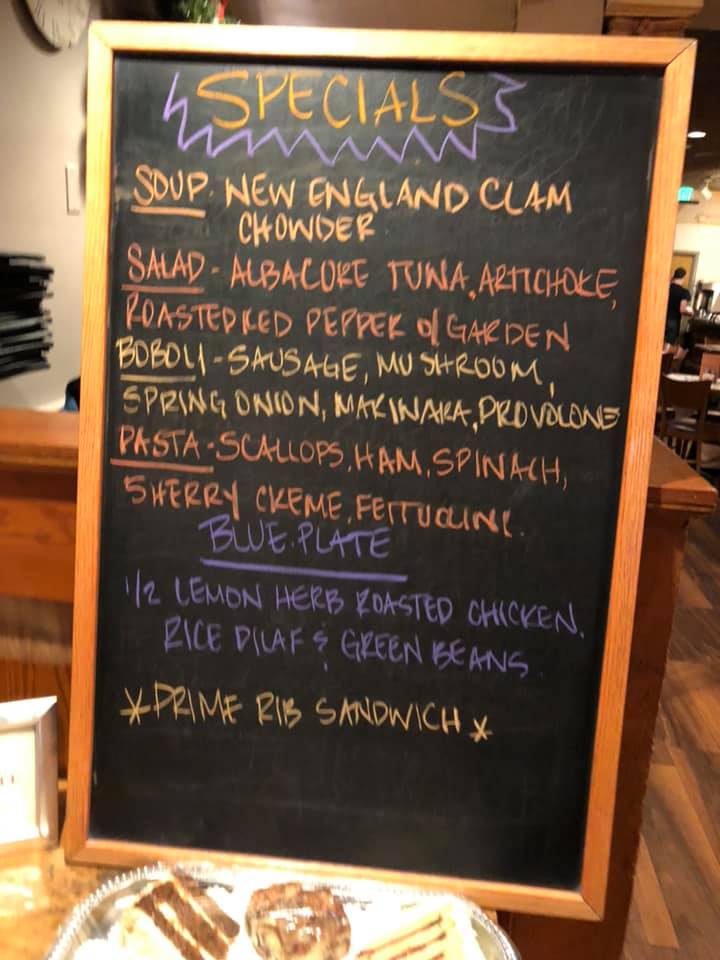 SPECIALS
SOUP. NEW ENGLAND CLAM
CHOWDER
SALAD - ALBACORE TUNA, ARTICHOKE,
ROASTED RED PEPPER o/ GARDEN
BOBOLI - SAUSAGE, MUSHROOM,
SPRING ONION, MARINARA, PROVOLONE
PASTA - SCALLOPS, HAM, SPINACH,
SHERRY CREME, FETTUCCINI.
BLUE.PLATE
1/2 LEMON HERB ROASTED CHICKEN.
RICE PILAF & GREEN BEANS.
*PRIME RIB SANDWICH*